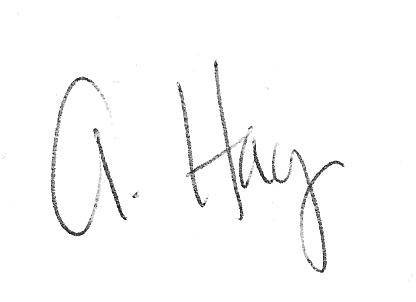 A. Hay